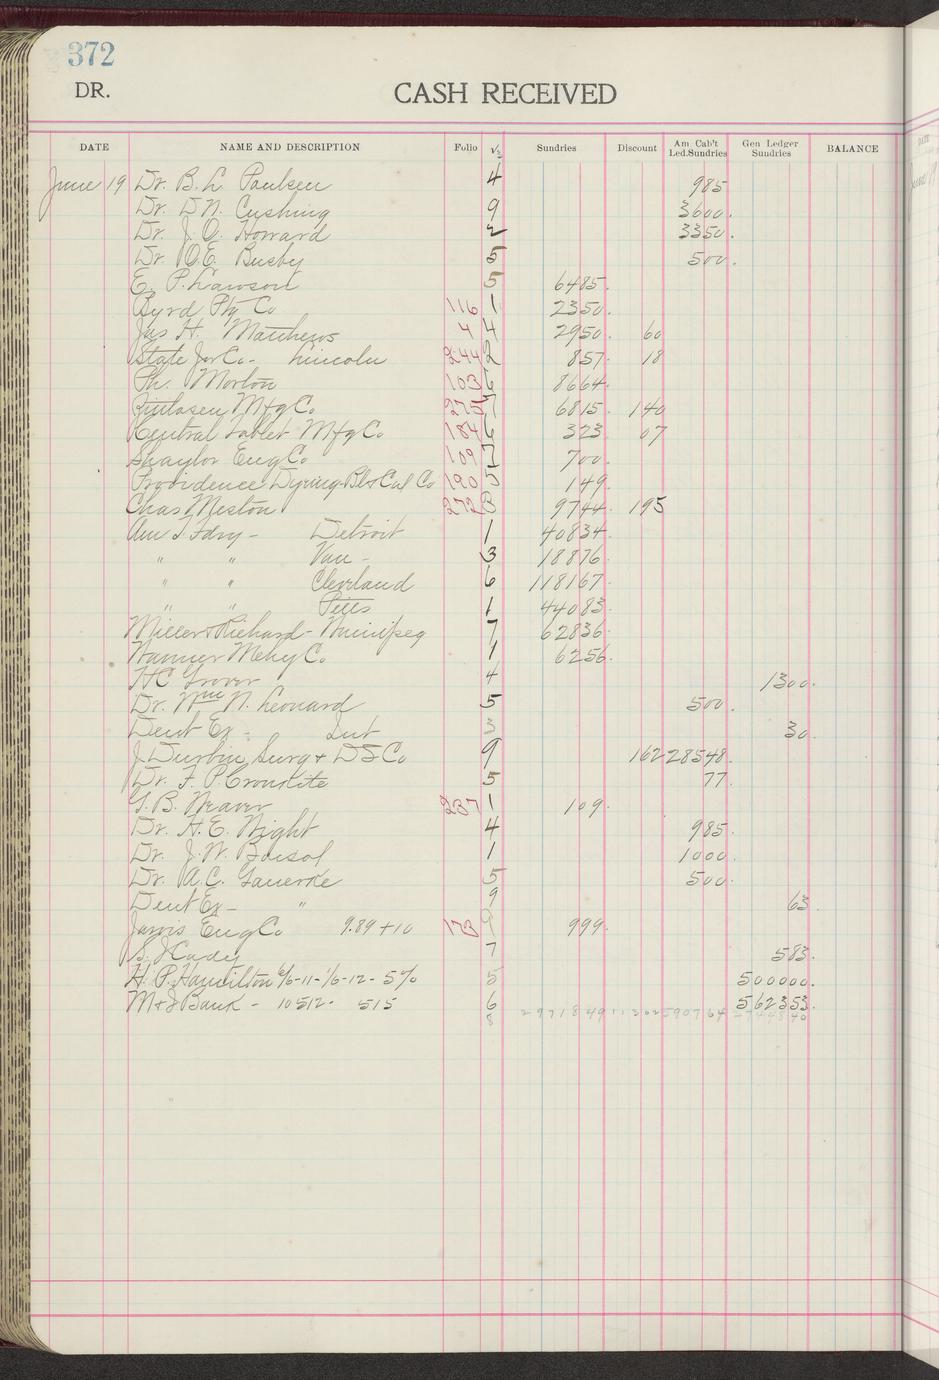 372
DR.
CASH RECEIVED
DATE NAME AND DESCRIPTION Folio √ Sundries Discount Am Cab't Led.Sundries Gen Ledger Sundries BALANCE
June 19 Dr. B. L. Paulsen 4 985
Dr. D. N. Cushing 9 3600.
Dr. J. O. Howard 2 3350.
Dr. O. E. Busby 5 500.
E. P. Lawson 5 6485.
Byrd Ptg Co 116 1 2350.
Jas H. Matthews 4 4 2950. 60
State Jor Co - Lincoln 244 2 857. 18
Ph. Morton 103 6 8664.
Mfg Co. 275 7 6815. 140
Central Tablet Mfg Co 184 6 323. 07
Shaylor Eng Co 109 7 700.
Providence Dyeing Bl & Cal Co 190 5 149.
Chas Meston 272 8 9744. 195
Am T Fdry - Detroit 1 40834.
" " Van - 3 18876.
" " Cleveland 6 118167.
" " Pitts 1 44083.
Miller & Richard - Winnipeg 7 62836.
Hanner Mchy Co. 1 6256.
H C Grover 4 1300.
Dr. Wm N. Leonard 5 500.
Dent Ex - Int 3 30.
J. Durbin Surg & D S Co 9 162 28548.
Dr. F. P. Cronkite 5 77.
G. B. Weaver 237 1 109.
Dr. H. E. Wight 4 985.
Dr. J. W. 1 1000.
Dr. A. C. 5 500.
Dent Ex - " 9 63.
Jarvis Eng Co 9.89 + 10 173 9 999.
S. J Cady 7 583.
H. P. Hamilton 6/6-11-1/6-12- 5% 5 500000.
M & J Bank - 10512 - 515 6 562353.
8 2971849 11302 590764